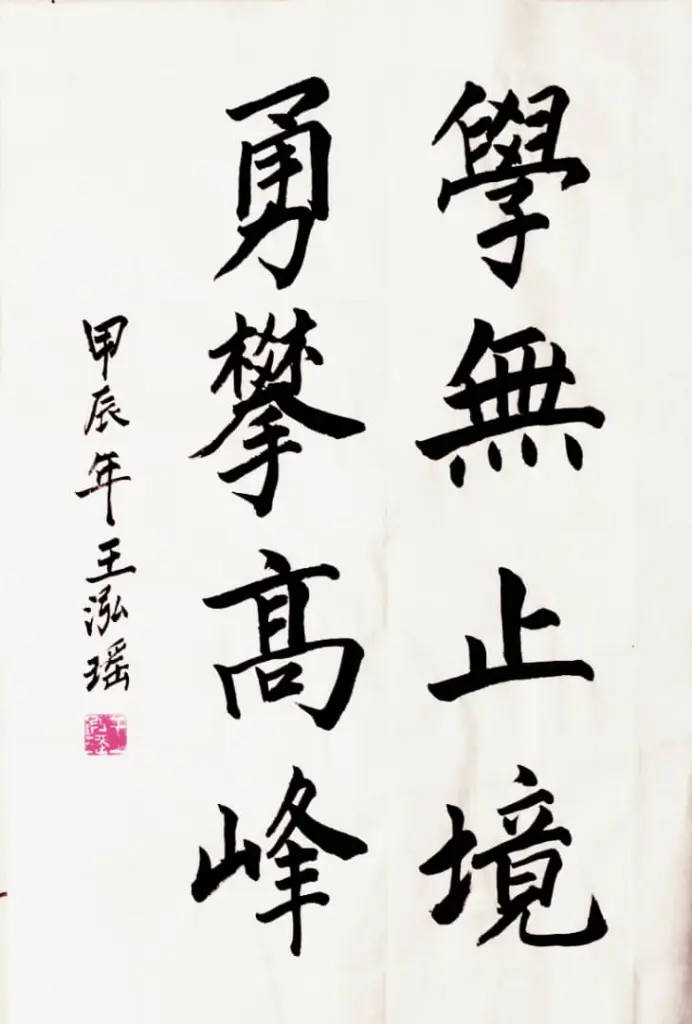 學無止境
勇攀髙峰
甲辰年王泓瑶